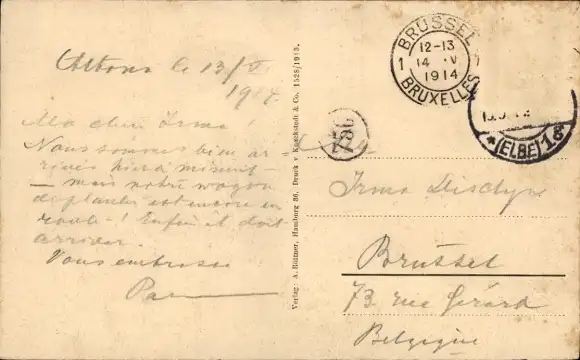 Altona le 13/V
1914.
Ma chère Irma!
Nous sommes bien ar
rivés hier à minuit—
— mais notre wagon
de plantes est encore en
route—! Enfin il doit
arriver.
Vous embrasse
Pa
Verlag: A. Büttner, Hamburg 36. Druck v. Knackstedt & Co. 1528/1913.
BRÜSSEL
12-13
1 14 V
1914
BRUXELLES
(ELBE) 1 g
Irma
Brüssel
73 rue Gérard
Belgique